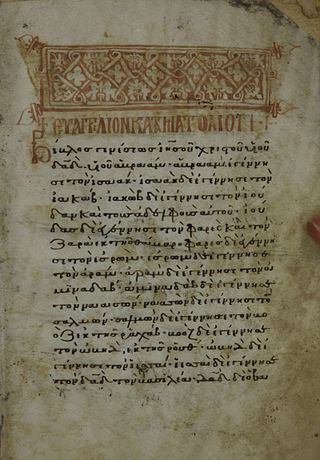 ΕΥΑΓΓΕΛΙΟΝ ΚΑΤΑ ΜΑΤΘΑΙΟΝ
Βίβλος γενέσεως ἰησοῦ χριστοῦ υἱοῦ
δαδ υἱοῦ ἀβραάμ · ἀβραὰμ ἐγέννη
σε τὸν ἰσαάκ · ἰσαὰκ δὲ ἐγέννησε τὸν
ἰακώβ · ἰακὼβ δὲ ἐγέννησε τὸν ἰού
δαν καὶ τοὺς ἀδελφοὺς αὐτοῦ · ἰού
δας δὲ ἐγέννησε τὸν φαρὲς καὶ τὸν
ζαρὰ ἐκ τῆς θάμαρ · φαρὲς δὲ ἐγέννη
σε τὸν ἐσρώμ · ἐσρὼμ δὲ ἐγέννησε
τὸν ἀράμ · ἀρὰμ δὲ ἐγέννησε τὸν ἀ
μιναδάβ · ἀμιναδὰβ δὲ ἐγέννησε
τὸν ναασσών · ναασσὼν δὲ ἐγέννησε τὸν
σαλμών · σαλμὼν δὲ ἐγέννησε τὸν βο
ὸζ ἐκ τῆς ῥαχάβ · βοὸζ δὲ ἐγέννησε
τὸν ὠβὴδ ἐκ τῆς ῥούθ · ὠβὴδ δὲ ἐγέννη
σε τὸν ἰεσσαί · ἰεσσαὶ δὲ ἐγέννησε
τὸν δαδ τὸν βασιλέα · δαδ δὲ ὁ βα